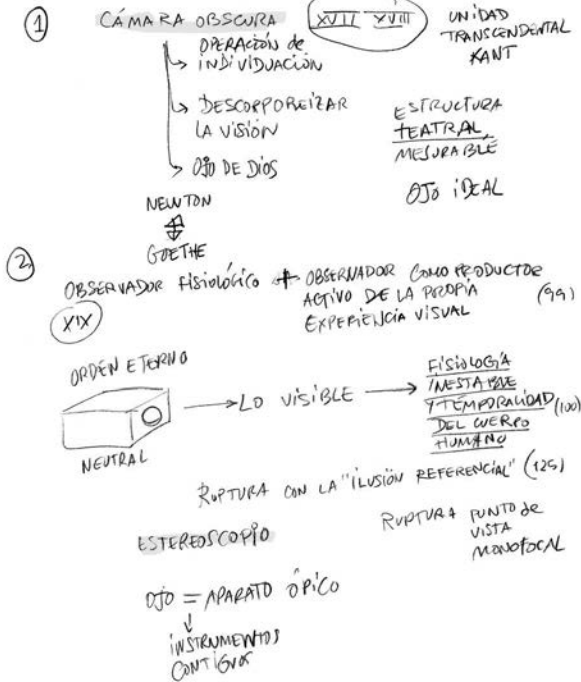 ①
CÁMARA OBSCURA
XVII XVIII
UNIDAD
TRANSCENDENTAL
KANT
OPERACIÓN de
INDIVIDUACIÓN
DESCORPOREIZAR
LA VISIÓN
OJO DE DIOS
ESTRUCTURA
TEATRAL
MESURABLE
OJO IDEAL
NEWTON
GOETHE
②
OBSERVADOR FISIOLÓGICO + OBSERVADOR COMO PRODUCTOR
ACTIVO DE LA PROPIA
EXPERIENCIA VISUAL (99)
XIX
ORDEN ETERNO
NEUTRAL
LO VISIBLE
FISIOLOGÍA
INESTABLE
Y TEMPORALIDAD (100)
DEL CUERPO
HUMANO
RUPTURA CON LA "ILUSIÓN REFERENCIAL" (125)
RUPTURA PUNTO de
VISTA
MONOFOCAL
ESTEREOSCOPIO
OJO = APARATO ÓPICO
INSTRUMENTOS
CONTIGUOS